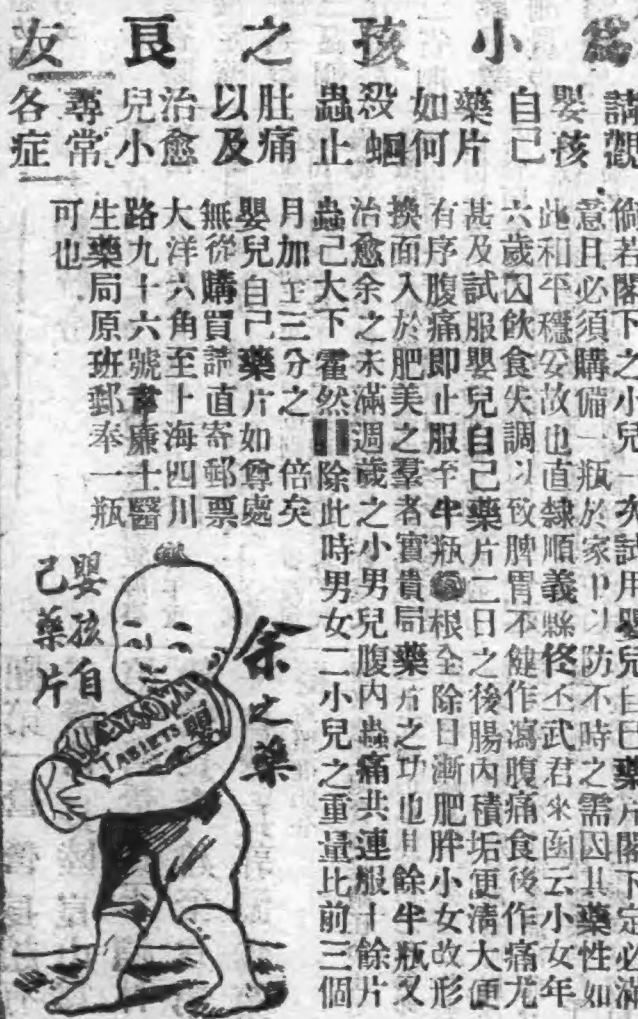 為小孩之良友
請觀
嬰孩
自己
藥片
如何
殺蛔
蟲止
肚痛
以及
治愈
兒小
尋常
各症
倘若閣下之小兒一次試用嬰兒自已藥片閣下定必滿
意且必須購備一瓶於家中以防不時之需因其藥性如
此和平穩妥故也直隸順義縣佟丕武君來函云小女年
六歲因飲食失調以致脾胃不健作瀉腹痛食後作痛尤
甚及試服嬰兒自己藥片二日之後腸內積垢便清大便
有序腹痛即止服至半瓶根全除日漸肥胖小女改形
換面入於肥美之羣者實貴局藥片之功也且餘半瓶又
治愈余之未滿週歲之小男兒腹內蟲痛共連服十餘片
蟲己大下霍然除此時男女二小兒之重量比前三個
月加至三分之 倍矣
嬰兒自己藥片如尊處
無從購買請直寄郵票
大洋六角至上海四川
路九十六號韋廉士醫
生藥局原班郵奉一瓶
可也
余之藥
嬰孩自
己藥片
TABLETS